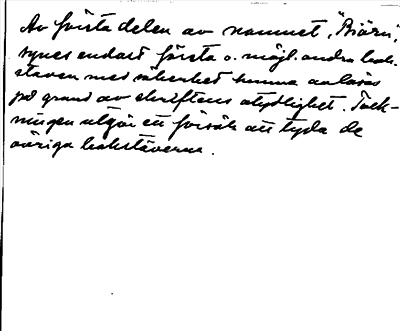 Av första delen av namnet, "Björn",
synes endast första o. möjl. andra bok-
staven med säkerhet kunna avläsas
på grund av skriftens otydlighet. Tolk-
ningen utgör ett försök att tyda de
övriga bokstäverna.